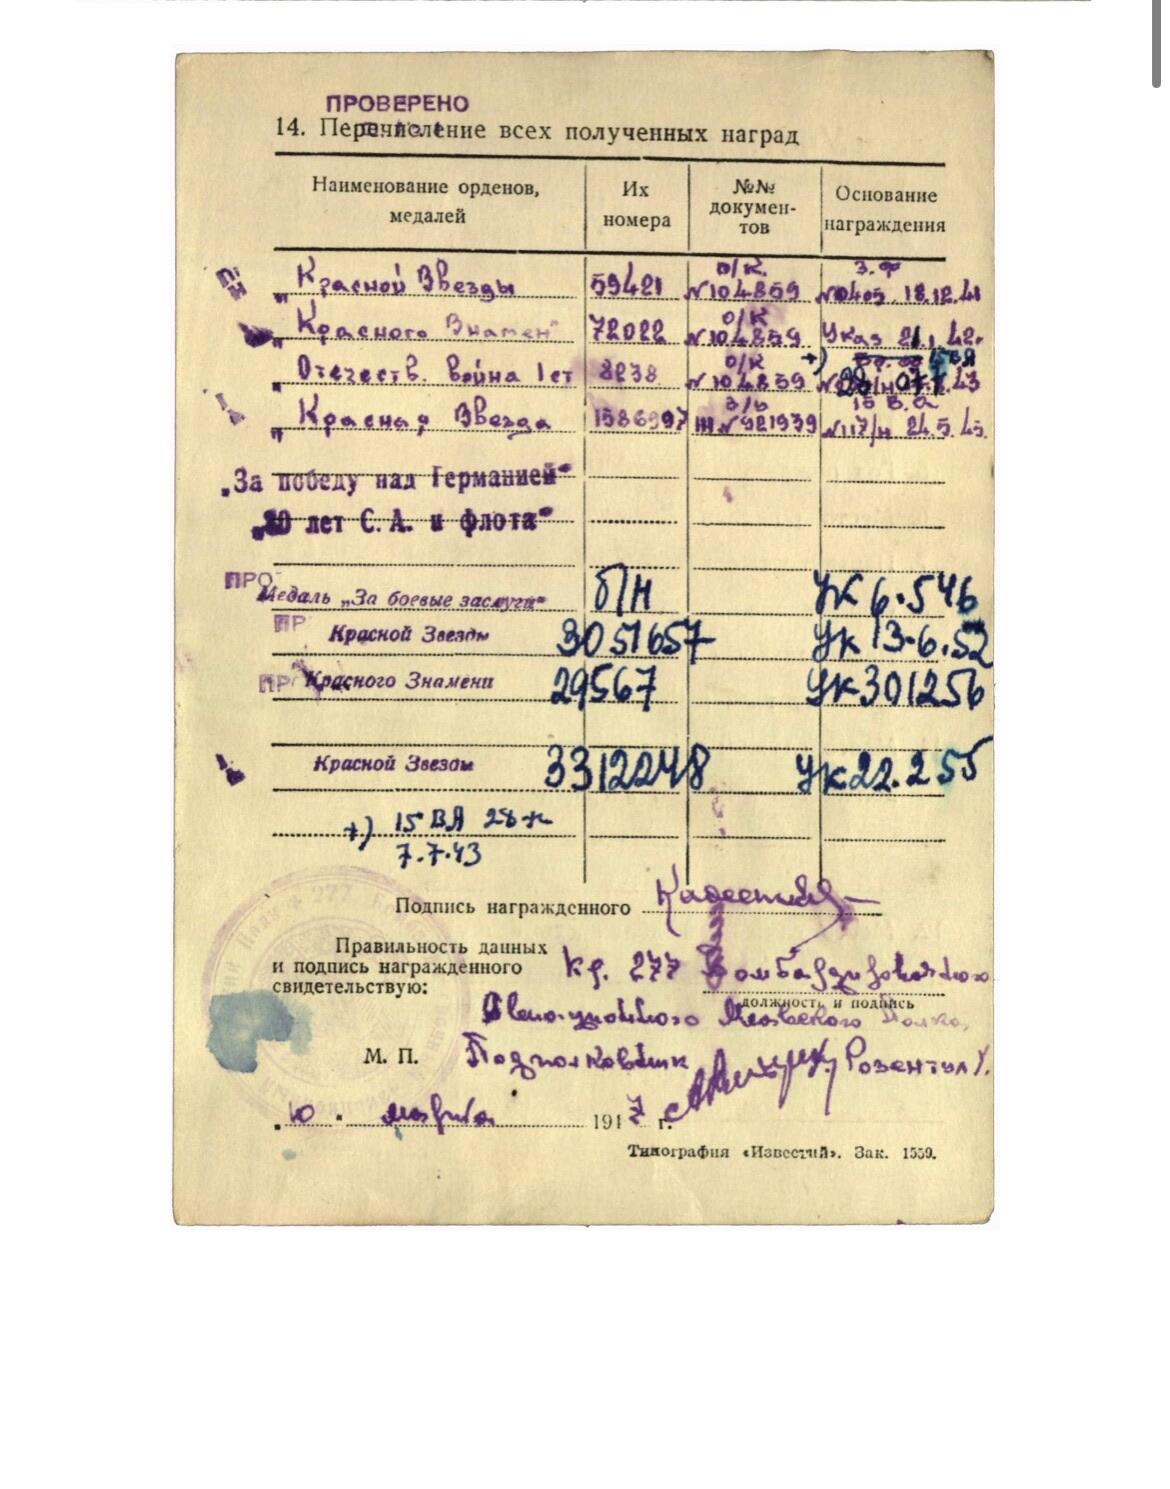 ПРОВЕРЕНО
14. Перечисление всех полученных наград
Наименование орденов, медалей
Их номера
№№ документов
Основание награждения
"Красной Звезды 59421 о/к. №104859 З.Ф №0405 18.12.41
"Красного Знамени" 72022 о/к №104859 Указ 21.1.42.
"Отечеств. война 1 ст 8238 о/к №104859 +) 43
"Красная Звезда 1586997 в/в III №921939 15 В.А №117/н 24.5.45.
„За победу над Германией"
„30 лет С. А. и флота"
ПРО
Медаль „За боевые заслуги" б/н УК 6.5 46
ПР
Красной Звезды 3051657 УК 13-6.52
ПР
Красного Знамени 29567 УК 301256
Красной Звезды 3312248 УК 22.2 55
+) 15 ВА 28-н
7.7.43
Подпись награжденного
Правильность данных
и подпись награжденного
свидетельствую:
Кр. 277 Бомбардировочного
должность и подпись
Авиационного Млавского Полка,
М. П. Подполковник Розентул/.
„10" марта 1947 г.
Типография «Известий». Зак. 1559.